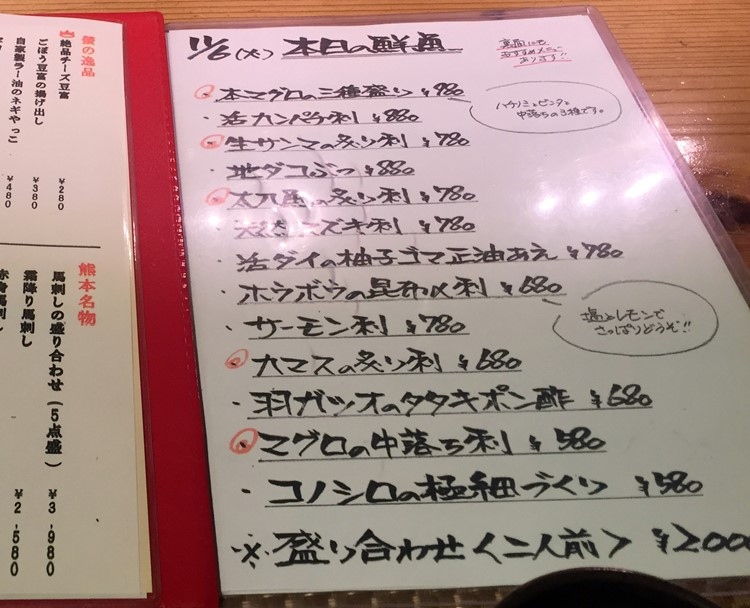 11/6(木) 本日の鮮魚
裏面にも
おすすめメニュー
あります!!
本マグロの三種盛り ¥980
ハチノミとピンタと
中落ちの3種です。
・活カンパチ刺 ¥880
生サンマの炙り刺 ¥780
・地ダコぶつ ¥880
太刀魚の炙り刺 ¥780
・天然スズキ刺 ¥780
・活ダイの柚子ゴマ正油あえ ¥780
・ホウボウの昆布〆刺 ¥680
塩とレモンで
さっぱりどうぞ!!
・サーモン刺 ¥780
カマスの炙り刺 ¥680
・羽ガツオのタタキポン酢 ¥680
マグロの中落ち刺 ¥580
・コノシロの極細づくり ¥580
※盛り合わせ〈二人前〉 ¥2000
の逸品
絶品チーズ豆富 ¥280
ごぼう豆富の揚げ出し ¥380
自家製ラー油のネギやっこ ¥480
熊本名物
馬刺しの盛り合わせ(5点盛) ¥3,980
霜降り馬刺し ¥2,580
赤身馬刺し